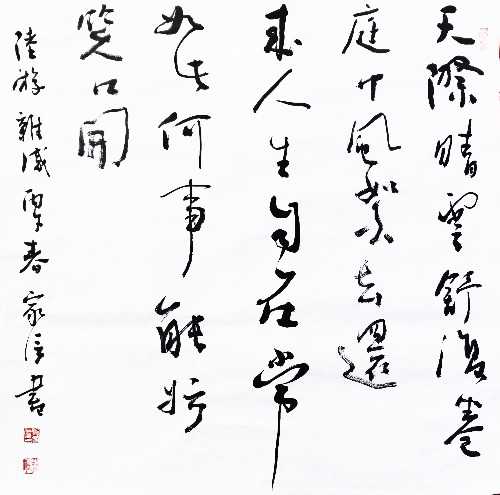 天際晴雲舒復卷
庭中風絮去還
來人生自在常
如此何事能妨
笑口開
陸游雜感春家信書